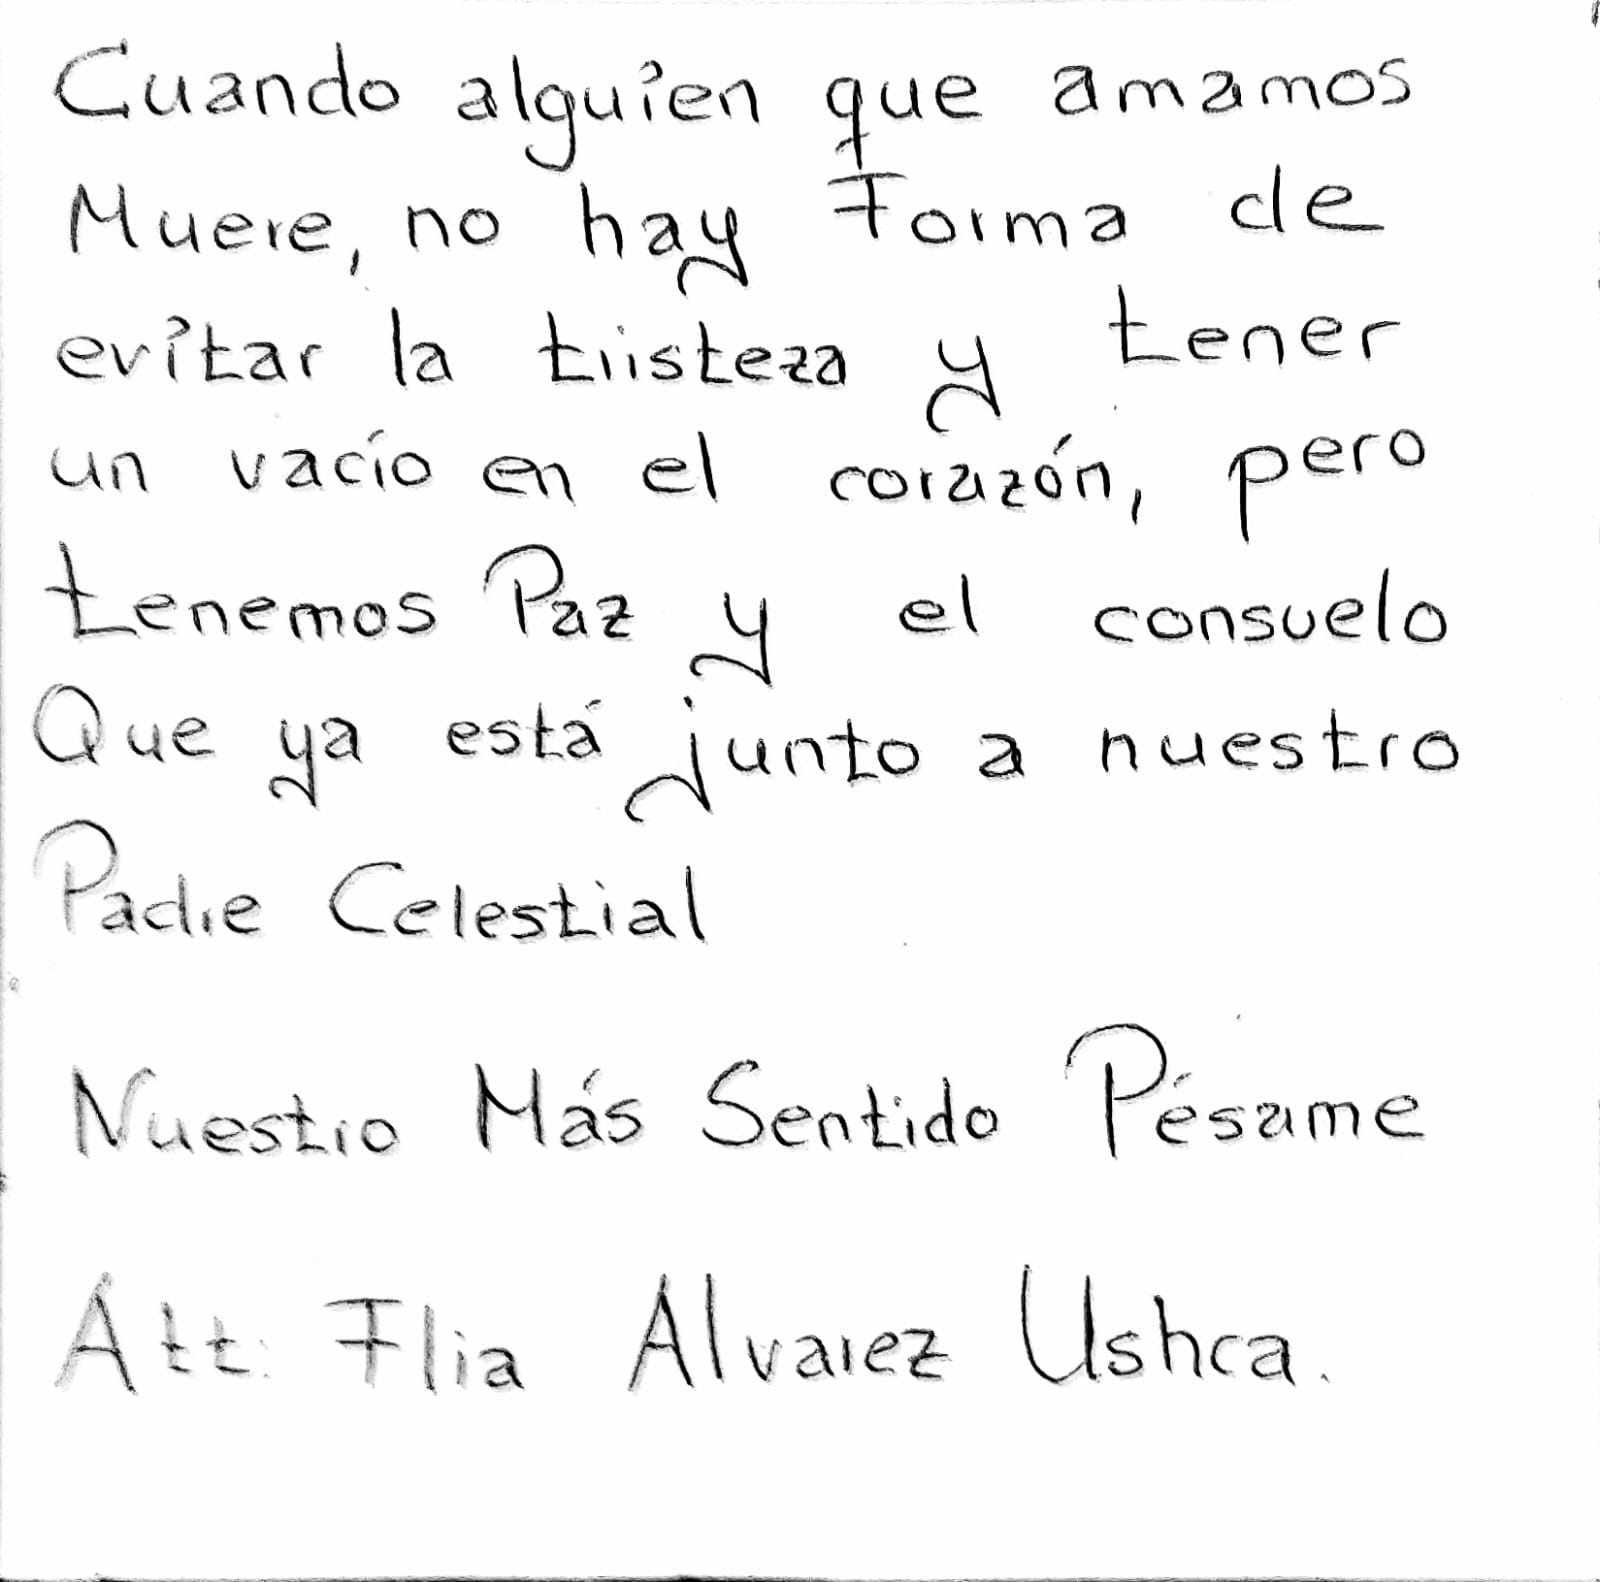 Cuando alguien que amamos
Muere, no hay Forma de
evitar la tristeza y tener
un vacío en el corazón, pero
tenemos Paz y el consuelo
Que ya está junto a nuestro
Padre Celestial
Nuestro Más Sentido Pésame
Att: Flia Alvarez Ushca.